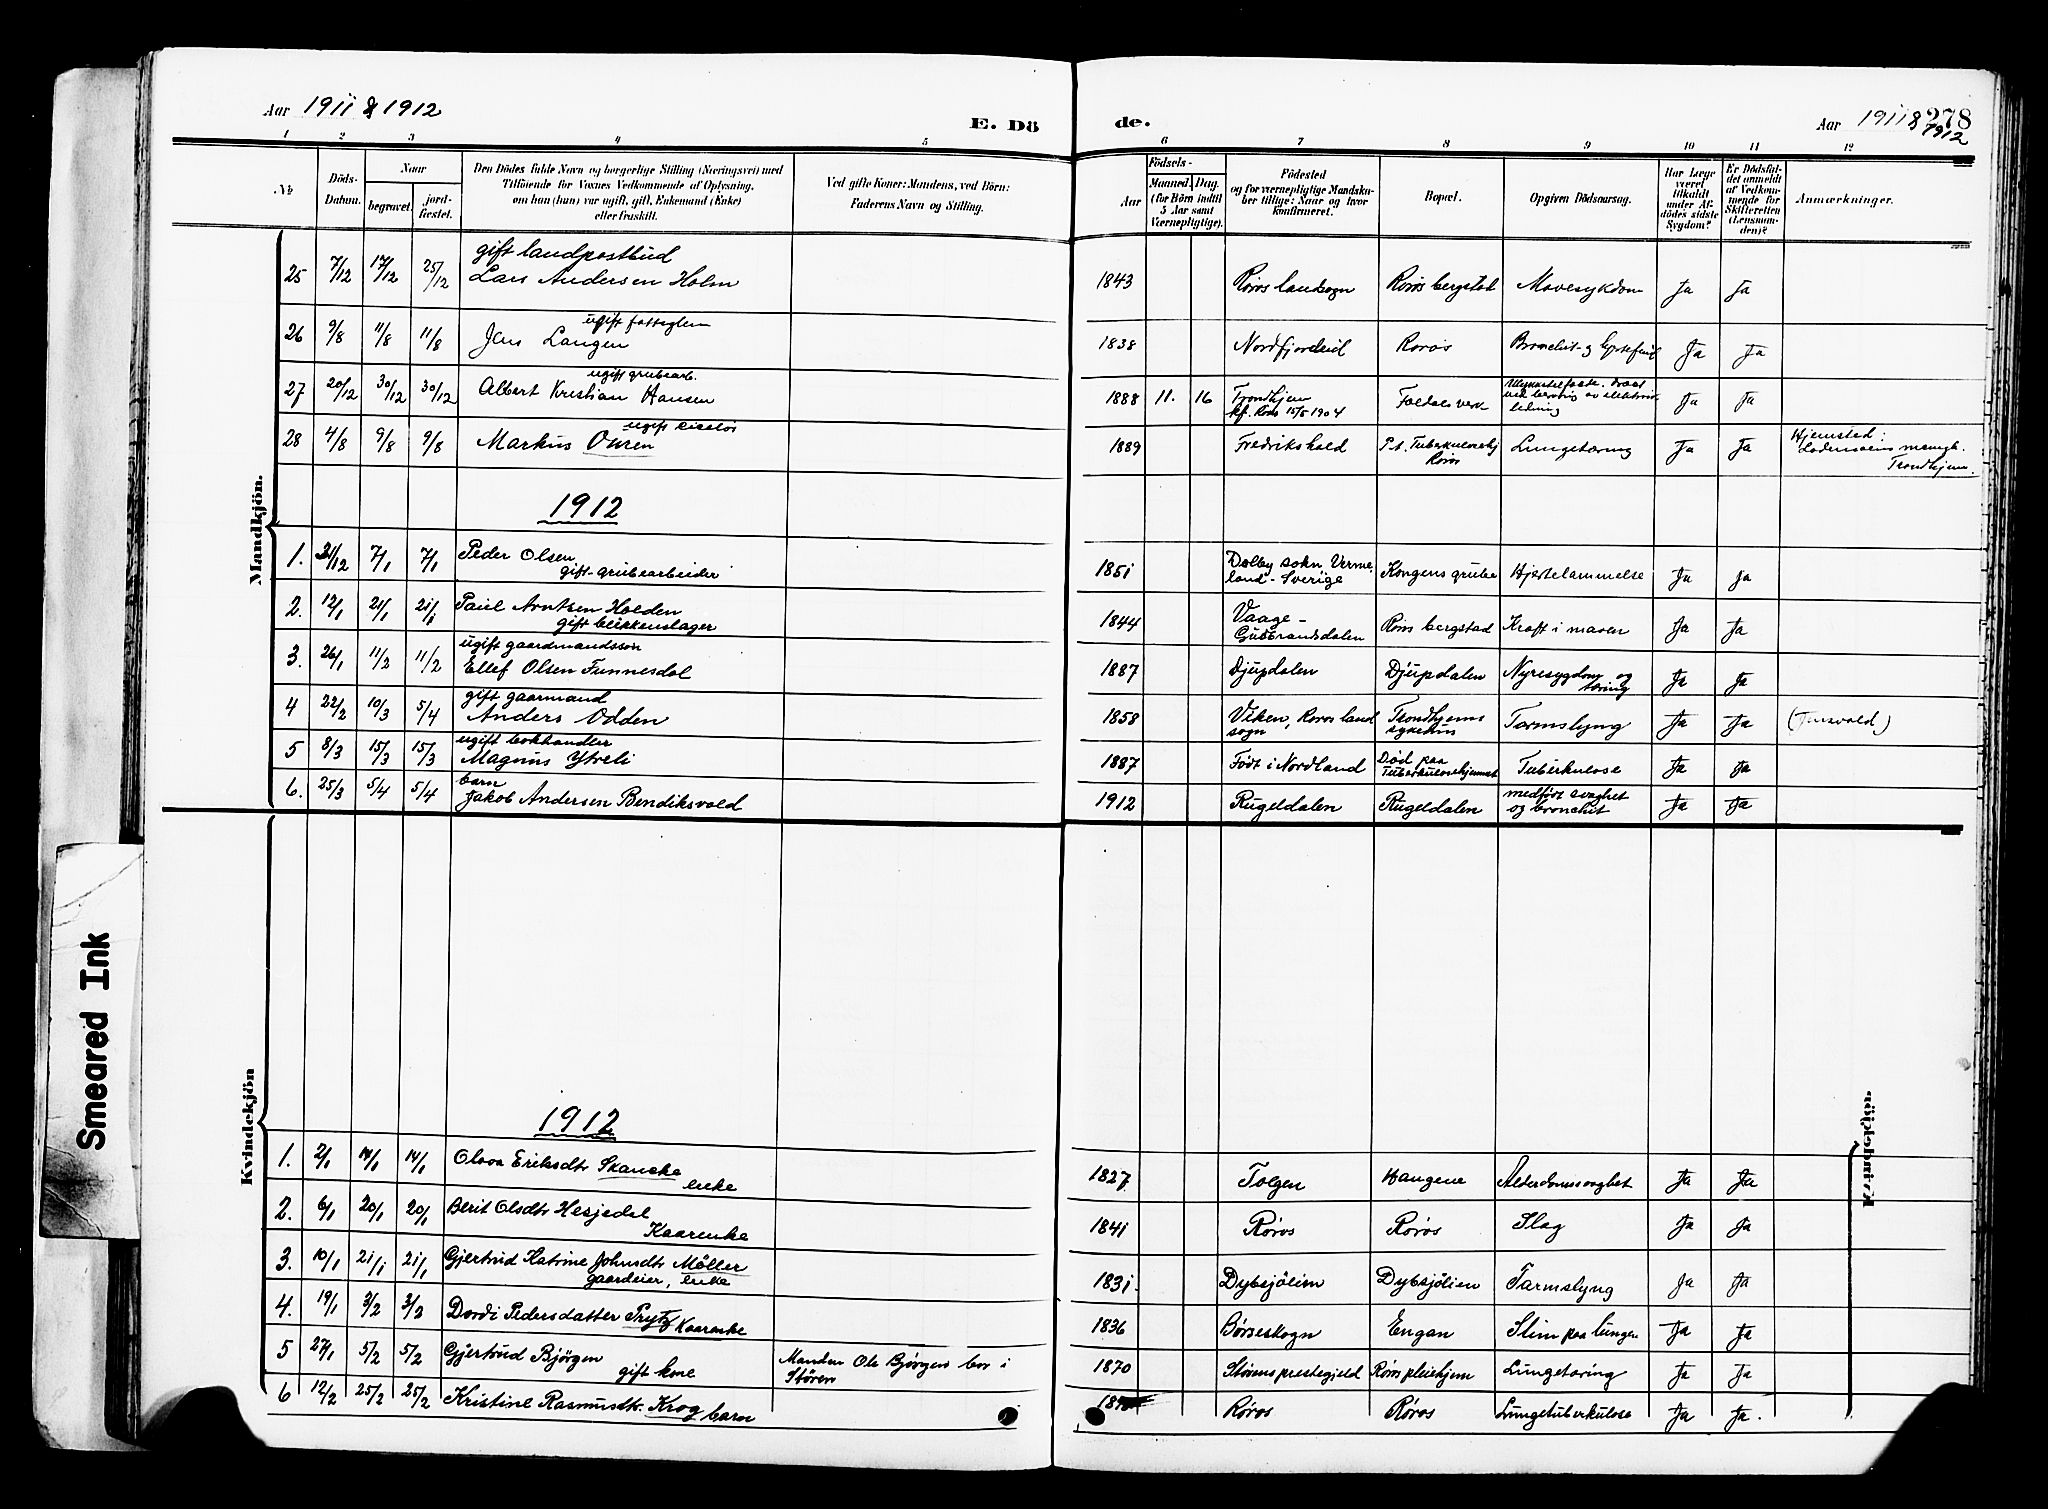 Aar 1911 & 1912
E. Dö
de.
Aar 1911 & 1912
278
1 2 3 4 5 6 7 8 9 10 11 12
No
Döds-Datum.
Naar
begravet.
jord-fæstet.
Den Dödes fulde Navn og borgerlige Stilling (Næringsvei) med
Tilföiende for Voxnes Vedkommende af Oplysning,
om han (hun) var ugift, gift, Enkemand (Enke)
eller fraskilt.
Ved gifte Koner: Mandens, ved Börn:
Faderens Navn og Stilling.
Födsels-
Aar
Maaned. Dag.
(for Börn indtil
5 Aar samt
Værnepligtige).
Födested
og for værnepligtige Mandska-
ber tillige: Naar og hvor
konfirmeret.
Bopæl.
Opgiven Dödsaarsag.
Har Læge
været
tilkaldt
under Af-
dödes sidste
Sygdom?
Er Dödsfal-
det anmeldt
af Vedkom-
mende for
Skifteretten
(Lensman-
den)?
Anmærkninger.
Mandkjön.
gift landpostbud
25 7/12 17/12 25/12 Lars Andersen Holm 1843 Røros landsogn Røros bergstad Mavesykdom Ja Ja
ugift fattiglem
26 9/8 11/8 11/8 Jens Langen 1838 Nordfjordeid Røros Bronchit og hjertefeil Ja Ja
ugift grubearb.
27 20/12 30/12 30/12 Albert Kristian Hansen 1888 11. 16 Trondhjem Foldals verk Ja Ja
kf. Røros 15/5 1904
Ulykkestilfælde. dræbt
ved berøring av elektrisk
ledning
28 4/8 9/8 9/8 Markus Ouren 1889 Fredrikshald P.t. Tuberkulosehj Lungetæring Ja Ja Hjemsted:
Røros
Trondhjem.
1912
1. 31/12 7/1 7/1 Peder Olsen 1851 Dalby sokn, Verme- Kongens grube Hjertelammelse Ja Ja
gift grubearbeider land - Sverige
2. 12/1 21/1 21/1 Paul Arntsen Holden 1844 Vaage - Røros bergstad Kræft i maven Ja Ja
gift blikkenslager Gudbrandsdalen
ugift gaardmandssøn
3. 26/1 11/2 11/2 Ellef Olsen Funnesdal 1887 Djupdalen Djupdalen Nyresygdom og Ja Ja
tæring
gift gaarmand
4 22/2 10/3 5/4 Anders Odden 1858 Viken, Røros land Trondhjems Tarmslyng Ja Ja
sogn sykehus
ugift bokhandler
5 8/3 15/3 15/3 Magnus Ytreli 1887 Født i Nordland Død paa Tuberkulose Ja Ja
Tuberkulosehjemmet
barn
6. 25/3 5/4 5/4 Jakob Andersen Bendiksvold 1912 Rugeldalen Rugeldalen medfødt svaghet Ja Ja
og bronchit
Kvindekjön
1912
1. 2/1 14/1 14/1 Olava Eriksdtr Skancke 1827 Tolgen Haugene Alderdomssvaghet Ja Ja
enke
2. 6/1 20/1 20/1 Berit Olsdtr Hesjedal 1841 Røros Røros Slag Ja Ja
Kaarenke
3. 10/1 21/1 21/1 Gjertrud Katrine Johnsdtr Möller 1831. Dybsjölien Dybsjölien Tarmslyng Ja Ja
gaardeier, enke
4. 19/1 3/2 3/2 Dordi Pedersdatter Prytz 1836 Børseskogn Engan Slim paa lungen Ja Ja
Kaarenke
5 27/1 5/2 5/2 Gjertrud Bjørgen Manden Ole Bjørgen bor i 1870 Størens prestegjeld Røros pleiehjem Lungetæring Ja Ja
gift kone Støren
6 12/2 25/2 25/2 Kristine Rasmusdtr. Krog barn Røros Røros Lungetuberkulose Ja Ja.
Kvindekjön.
Smeared Ink